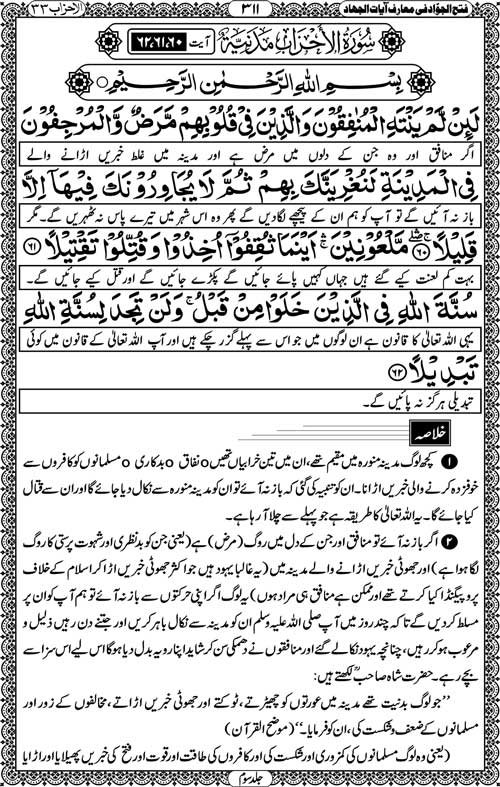 فتح الجوّاد فی معارف آیات الجهاد ۳۱۱ الاحزاب ۳۳
سُوْرَةُ الْاَحْزَابِ مَدَنِيَّةٌ آیت ۶۲،۶۱،۶۰
بِسْمِ اللهِ الرَّحْمٰنِ الرَّحِيْمِ
لَئِنْ لَّمْ يَنْتَهِ الْمُنٰفِقُوْنَ وَالَّذِيْنَ فِيْ قُلُوْبِهِمْ مَّرَضٌ وَّالْمُرْجِفُوْنَ
اگر منافق اور وہ جن کے دلوں میں مرض ہے اور مدینہ میں غلط خبریں اڑانے والے
فِي الْمَدِيْنَةِ لَنُغْرِيَنَّكَ بِهِمْ ثُمَّ لَا يُجَاوِرُوْنَكَ فِيْهَا اِلَّا
باز نہ آئیں گے تو آپ کو ہم ان کے پیچھے لگا دیں گے پھر وہ اس شہر میں تیرے پاس نہ ٹھہریں گے۔ مگر
قَلِيْلًا ۶۰ مَّلْعُوْنِيْنَ اَيْنَمَا ثُقِفُوْٓا اُخِذُوْا وَقُتِّلُوْا تَقْتِيْلًا ۶۱
بہت کم لعنت کیے گئے ہیں جہاں کہیں پائے جائیں گے پکڑے جائیں گے اور قتل کیے جائیں گے۔
سُنَّةَ اللهِ فِي الَّذِيْنَ خَلَوْا مِنْ قَبْلُ وَلَنْ تَجِدَ لِسُنَّةِ اللهِ
یہی اللہ تعالیٰ کا قانون ہے ان لوگوں میں جو اس سے پہلے گزر چکے ہیں اور آپ اللہ تعالیٰ کے قانون میں کوئی
تَبْدِيْلًا ۶۲
تبدیلی ہرگز نہ پائیں گے۔
خلاصہ
۱ کچھ لوگ مدینہ منورہ میں مقیم تھے، ان میں تین خرابیاں تھیں o نفاق o بدکاری o مسلمانوں کو کافروں سے
خوفزدہ کرنے والی خبریں اڑانا۔ ان کو تنبیہ کی گئی کہ باز نہ آئے تو ان کو مدینہ منورہ سے نکال دیا جائے گا اور ان سے قتال
کیا جائے گا۔ یہ اللہ تعالیٰ کا طریقہ ہے جو پہلے سے چلا آ رہا ہے۔
۲ اگر باز نہ آئے تو منافق اور جن کے دل میں روگ (مرض) ہے (یعنی جن کو بدنظری اور شہوت پرستی کا روگ
لگا ہوا ہے) اور جھوٹی خبریں اڑانے والے مدینہ میں (یہ غالباً یہود ہیں جو اکثر جھوٹی خبریں اڑا کر اسلام کے خلاف
پروپیگنڈا کیا کرتے تھے اور ممکن ہے منافق ہی مراد ہوں) یہ لوگ اگر اپنی حرکتوں سے باز نہ آئے تو ہم آپ کو ان پر
مسلط کر دیں گے تا کہ چند روز میں آپ صلی اللہ علیہ وسلم ان کو مدینہ سے نکال باہر کریں اور جتنے دن رہیں ذلیل و
مرعوب ہو کر رہیں، چنانچہ یہود نکالے گئے اور منافقوں نے دھمکی سن کر شاید اپنا رویہ بدل دیا ہوگا اس لیے اس سزا سے
بچے رہے۔ حضرت شاہ صاحبؒ لکھتے ہیں:
’’جو لوگ بدنیت تھے مدینہ میں عورتوں کو چھیڑتے، ٹوکتے اور جھوٹی خبریں اڑاتے، مخالفوں کے زور اور
مسلمانوں کے ضعف و شکست کی، ان کو فرمایا۔‘‘ (موضح القرآن)
(یعنی وہ لوگ مسلمانوں کی کمزوری اور شکست کی اور کافروں کی طاقت اور قوت اور فتح کی خبریں پھیلایا اور اڑایا
جلد سوم